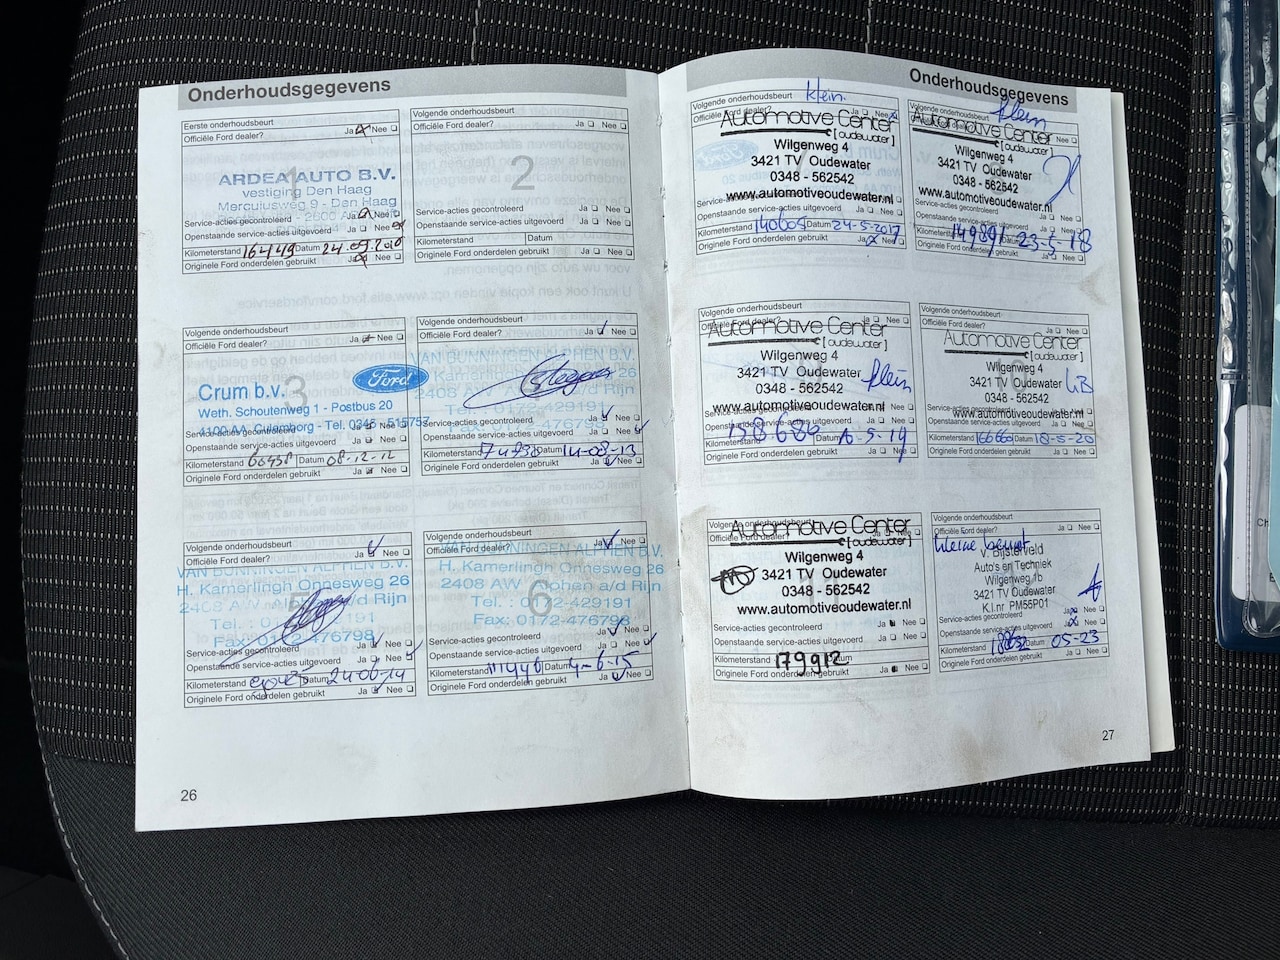 Onderhoudsgegevens
Eerste onderhoudsbeurt
Officiële Ford dealer? Ja Nee
1
ARDEA AUTO B.V.
vestiging Den Haag
Mercuriusweg 9 - Den Haag
2600 A
Service-acties gecontroleerd Ja Nee
Openstaande service-acties uitgevoerd Ja Nee
Kilometerstand 16449 Datum 24.09.2010
Originele Ford onderdelen gebruikt Ja Nee
Volgende onderhoudsbeurt
Officiële Ford dealer? Ja Nee
2
Service-acties gecontroleerd Ja Nee
Openstaande service-acties uitgevoerd Ja Nee
Kilometerstand Datum
Originele Ford onderdelen gebruikt Ja Nee
Volgende onderhoudsbeurt
Officiële Ford dealer? Ja Nee
3
Crum b.v. Ford
Weth. Schoutenweg 1 - Postbus 20
4100 AA Culemborg - Tel. 0345 - 515757
Service-acties gecontroleerd Ja Nee
Openstaande service-acties uitgevoerd Ja Nee
Kilometerstand 66458 Datum 08-12-12
Originele Ford onderdelen gebruikt Ja Nee
Volgende onderhoudsbeurt
Officiële Ford dealer? Ja Nee
VAN BUNNINGEN ALPHEN B.V.
H. Kamerlingh Onnesweg 26
2408 AW Alphen a/d Rijn
Tel. : 0172-429191
Fax: 0172-476798
Service-acties gecontroleerd Ja Nee
Openstaande service-acties uitgevoerd Ja Nee
Kilometerstand Datum 14-08-13
Originele Ford onderdelen gebruikt Ja Nee
Volgende onderhoudsbeurt
Officiële Ford dealer? Ja Nee
VAN BUNNINGEN ALPHEN B.V.
H. Kamerlingh Onnesweg 26
2408 AW Alphen a/d Rijn
Tel. : 0172-429191
Fax: 0172-476798
Service-acties gecontroleerd Ja Nee
Openstaande service-acties uitgevoerd Ja Nee
Kilometerstand Datum 24-06-14
Originele Ford onderdelen gebruikt Ja Nee
Volgende onderhoudsbeurt
Officiële Ford dealer? Ja Nee
6
VAN BUNNINGEN ALPHEN B.V.
H. Kamerlingh Onnesweg 26
2408 AW Alphen a/d Rijn
Tel. : 0172-429191
Fax: 0172-476798
Service-acties gecontroleerd Ja Nee
Openstaande service-acties uitgevoerd Ja Nee
Kilometerstand 111446 Datum 4-6-15
Originele Ford onderdelen gebruikt Ja Nee
26
Onderhoudsgegevens
Volgende onderhoudsbeurt klein
Officiële Ford dealer? Ja Nee
Automotive Center
[oudewater]
Wilgenweg 4
3421 TV Oudewater
0348 - 562542
www.automotiveoudewater.nl
Openstaande service-acties uitgevoerd Ja Nee
Kilometerstand 140605 Datum 24-5-2017
Originele Ford onderdelen gebruikt Ja Nee
Volgende onderhoudsbeurt klein
Officiële Ford dealer? Ja Nee
Automotive Center
[oudewater]
Wilgenweg 4
3421 TV Oudewater
0348 - 562542
www.automotiveoudewater.nl
Openstaande service-acties uitgevoerd Ja Nee
Kilometerstand 149891 Datum 23-5-18
Originele Ford onderdelen gebruikt Ja Nee
Volgende onderhoudsbeurt
Officiële Ford dealer? Ja Nee
Automotive Center
[oudewater]
Wilgenweg 4
3421 TV Oudewater klein
0348 - 562542
www.automotiveoudewater.nl
Service-acties gecontroleerd Ja Nee
Openstaande service-acties uitgevoerd Ja Nee
Kilometerstand 158.686 Datum 16-5-19
Originele Ford onderdelen gebruikt Ja Nee
Volgende onderhoudsbeurt
Officiële Ford dealer? Ja Nee
Automotive Center
[oudewater]
Wilgenweg 4
3421 TV Oudewater
0348 - 562542
www.automotiveoudewater.nl
Openstaande service-acties uitgevoerd Ja Nee
Kilometerstand 166660 Datum 18-5-20
Originele Ford onderdelen gebruikt Ja Nee
Volgende onderhoudsbeurt
Officiële Ford dealer? Ja Nee
Automotive Center
[oudewater]
Wilgenweg 4
3421 TV Oudewater
0348 - 562542
www.automotiveoudewater.nl
Service-acties gecontroleerd Ja Nee
Openstaande service-acties uitgevoerd Ja Nee
Kilometerstand 179912 Datum
Originele Ford onderdelen gebruikt Ja Nee
Volgende onderhoudsbeurt
Officiële Ford dealer? Ja Nee
kleine beurt
v. Bijsterveld
Auto's en Techniek
Wilgenweg 7b
3421 TV Oudewater
K.I.nr PM55P01
Service-acties gecontroleerd Ja Nee
Openstaande service-acties uitgevoerd Ja Nee
Kilometerstand Datum 05-23
Originele Ford onderdelen gebruikt Ja Nee
27